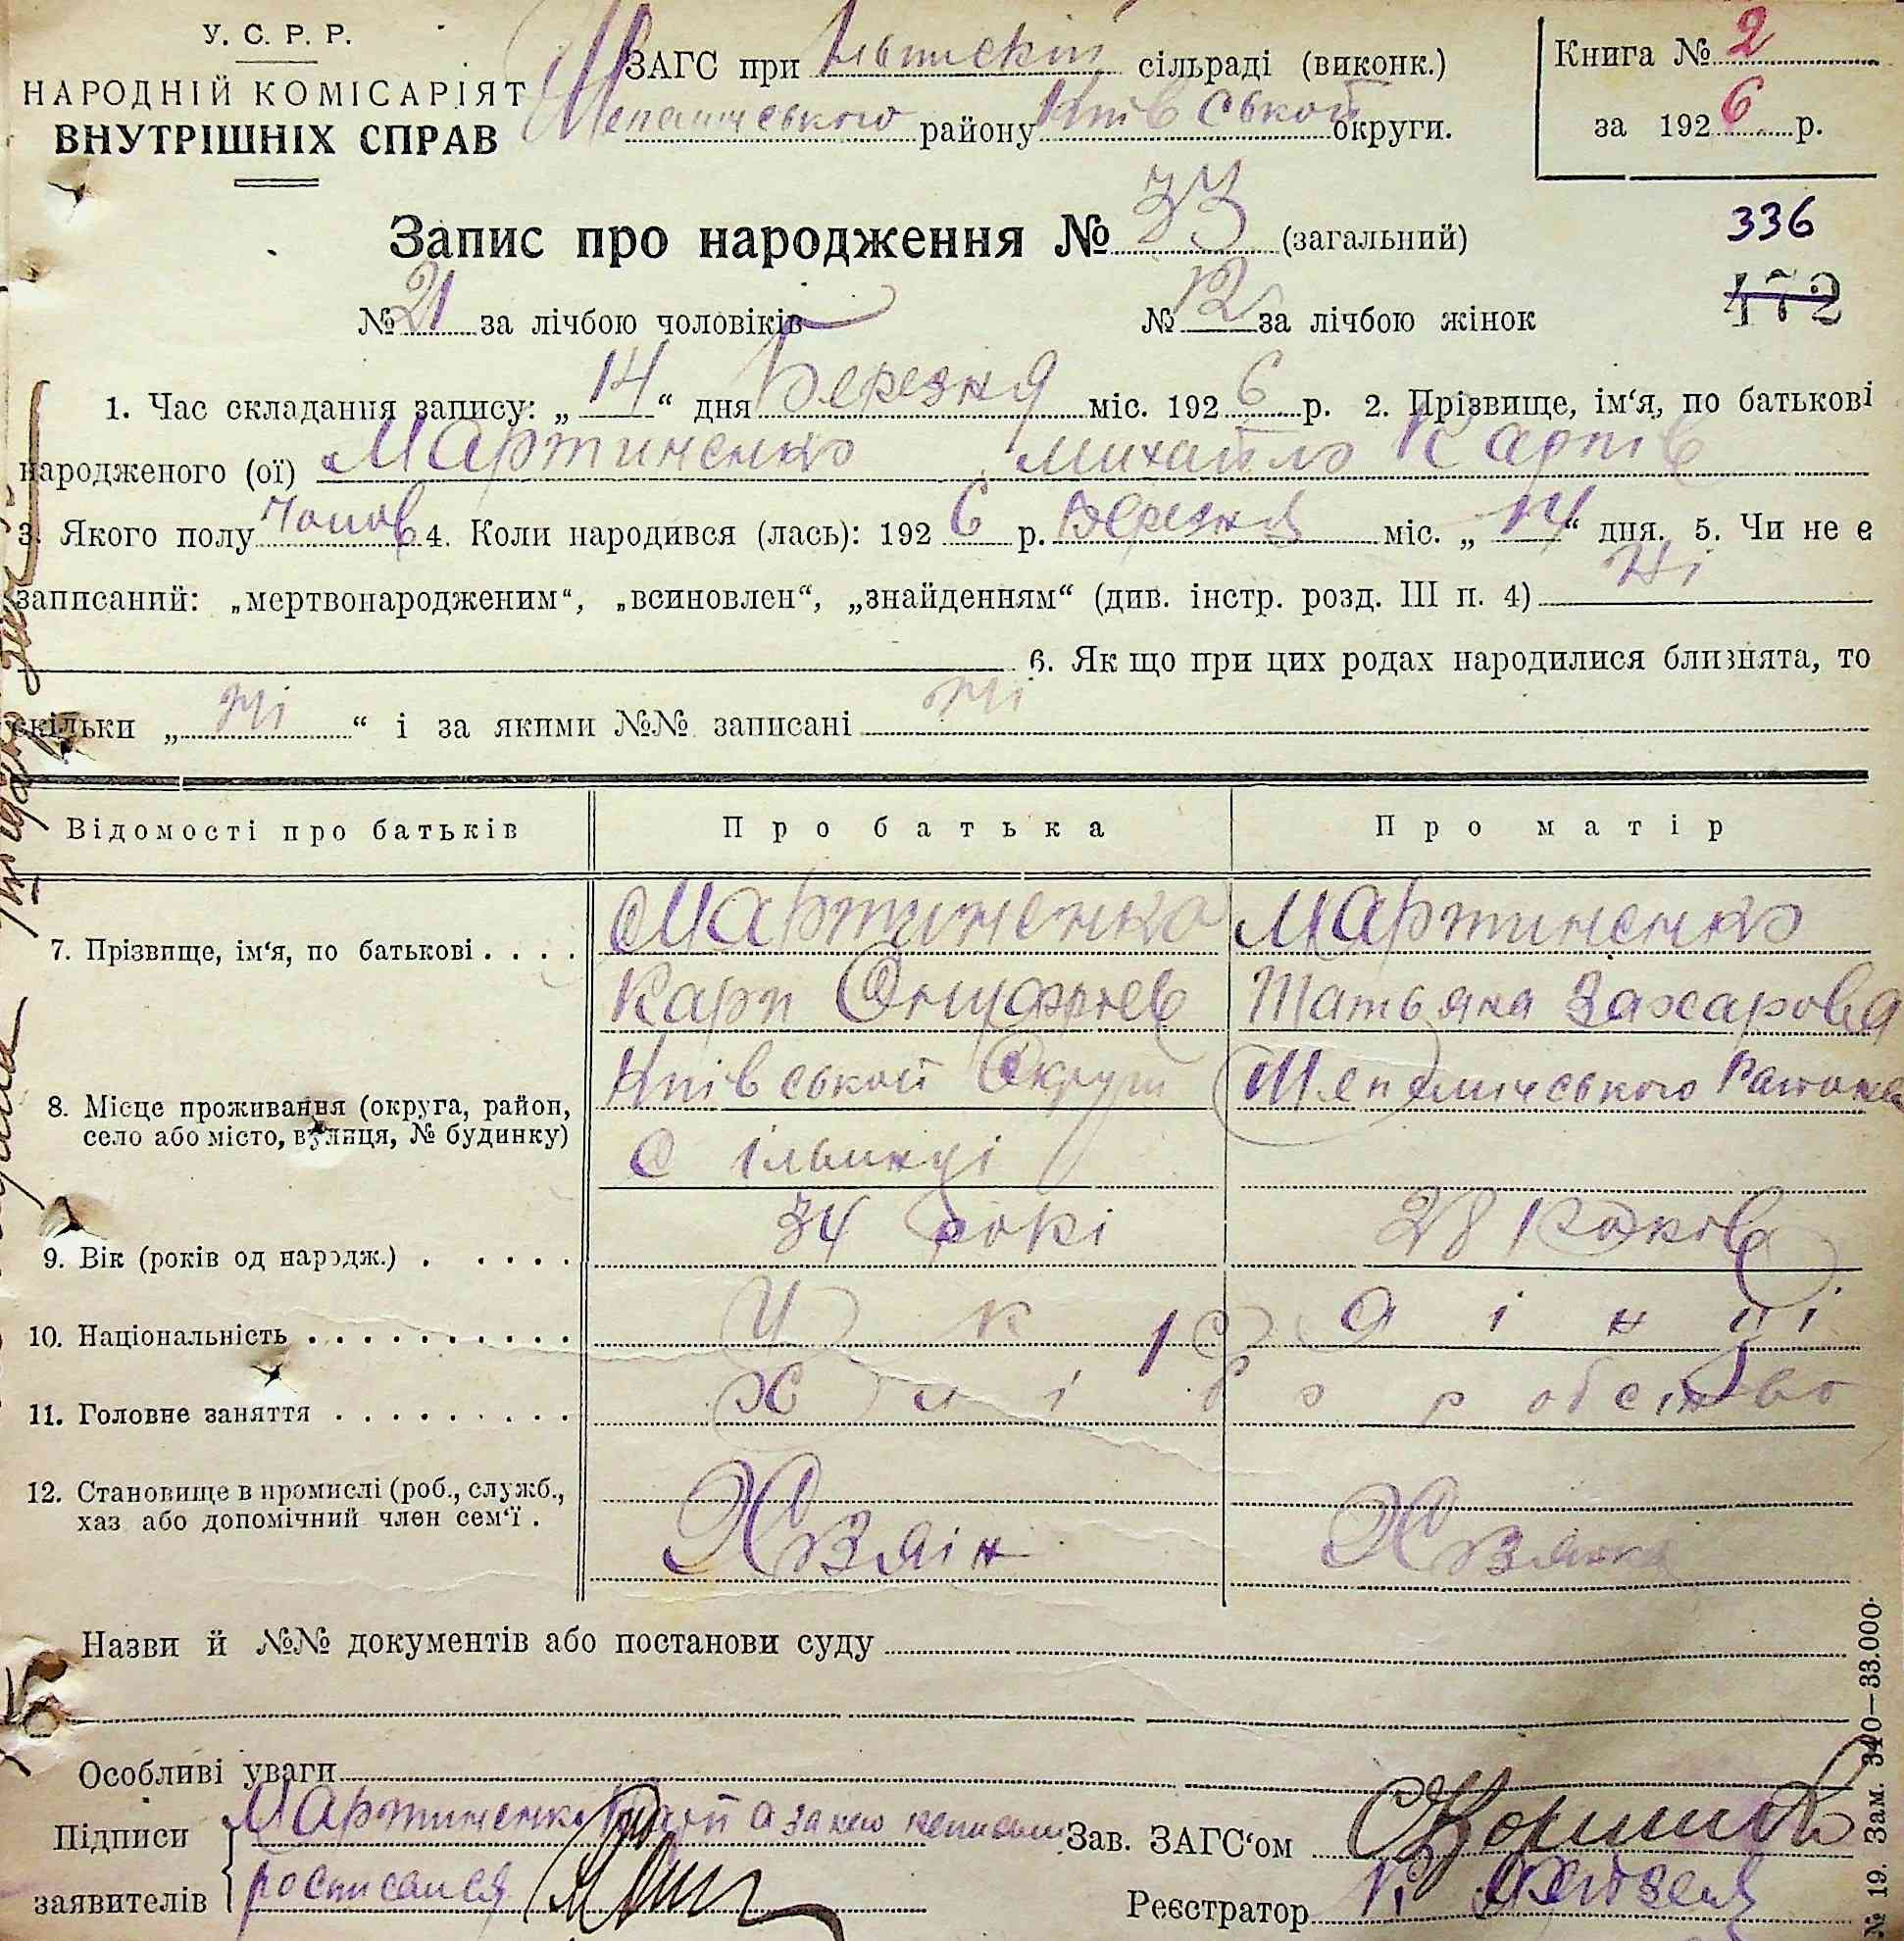 У. С. Р. Р.
НАРОДНІЙ КОМІСАРІЯТ
ВНУТРІШНІХ СПРАВ
ЗАГС при сільраді (виконк.)
району Київської округи.
Книга № 2
за 1926 р.
Запис про народження № 33 (загальний)
336
172
№ 21 за лічбою чоловіків № 12 за лічбою жінок
1. Час складання запису: „14“ дня Березня міс. 1926 р. 2. Прізвище, ім‘я, по батькові
народженого (ої) Мартиненко Михайло Карпів
3. Якого полу Чолов 4. Коли народився (лась): 1926 р. Березня міс. „14“ дня. 5. Чи не є
записаний: „мертвонародженим“, „всиновлен“, „знайденням“ (див. інстр. розд. III п. 4) Ні
6. Як що при цих родах народилися близнята, то
скільки „ні“ і за якими №№ записані ні
Відомості про батьків Про батька Про матір
7. Прізвище, ім‘я, по батькові . . . . Мартиненко Мартиненко
Карп Онуфріев Татьяна Захарова
8. Місце проживання (округа, район, село або місто, вулиця, № будинку) Київськой Округи
С ільинці
9. Вік (років од народж.) . . . . . . 34 рокі 28 Років
10. Національність . . . . . . . . . . . Украінці
11. Головне заняття . . . . . . . . . . Хліборобство
12. Становище в промислі (роб., служб.,
хаз або допомічний член сем‘ї . Хозяін Хозяйка
Назви й №№ документів або постанови суду
Особливі уваги
Підписи Мартиненко Карп а за його Зав. ЗАГС‘ом
заявителів росписался Реєстратор
№ 19. Зам. 340—33.000.